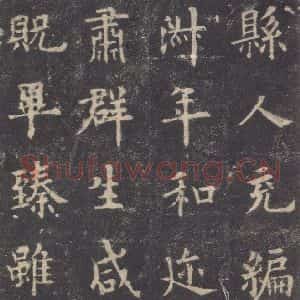 縣人充編
淑年和迩
肅群生咸
貺畢臻雖
Shufawang.CN